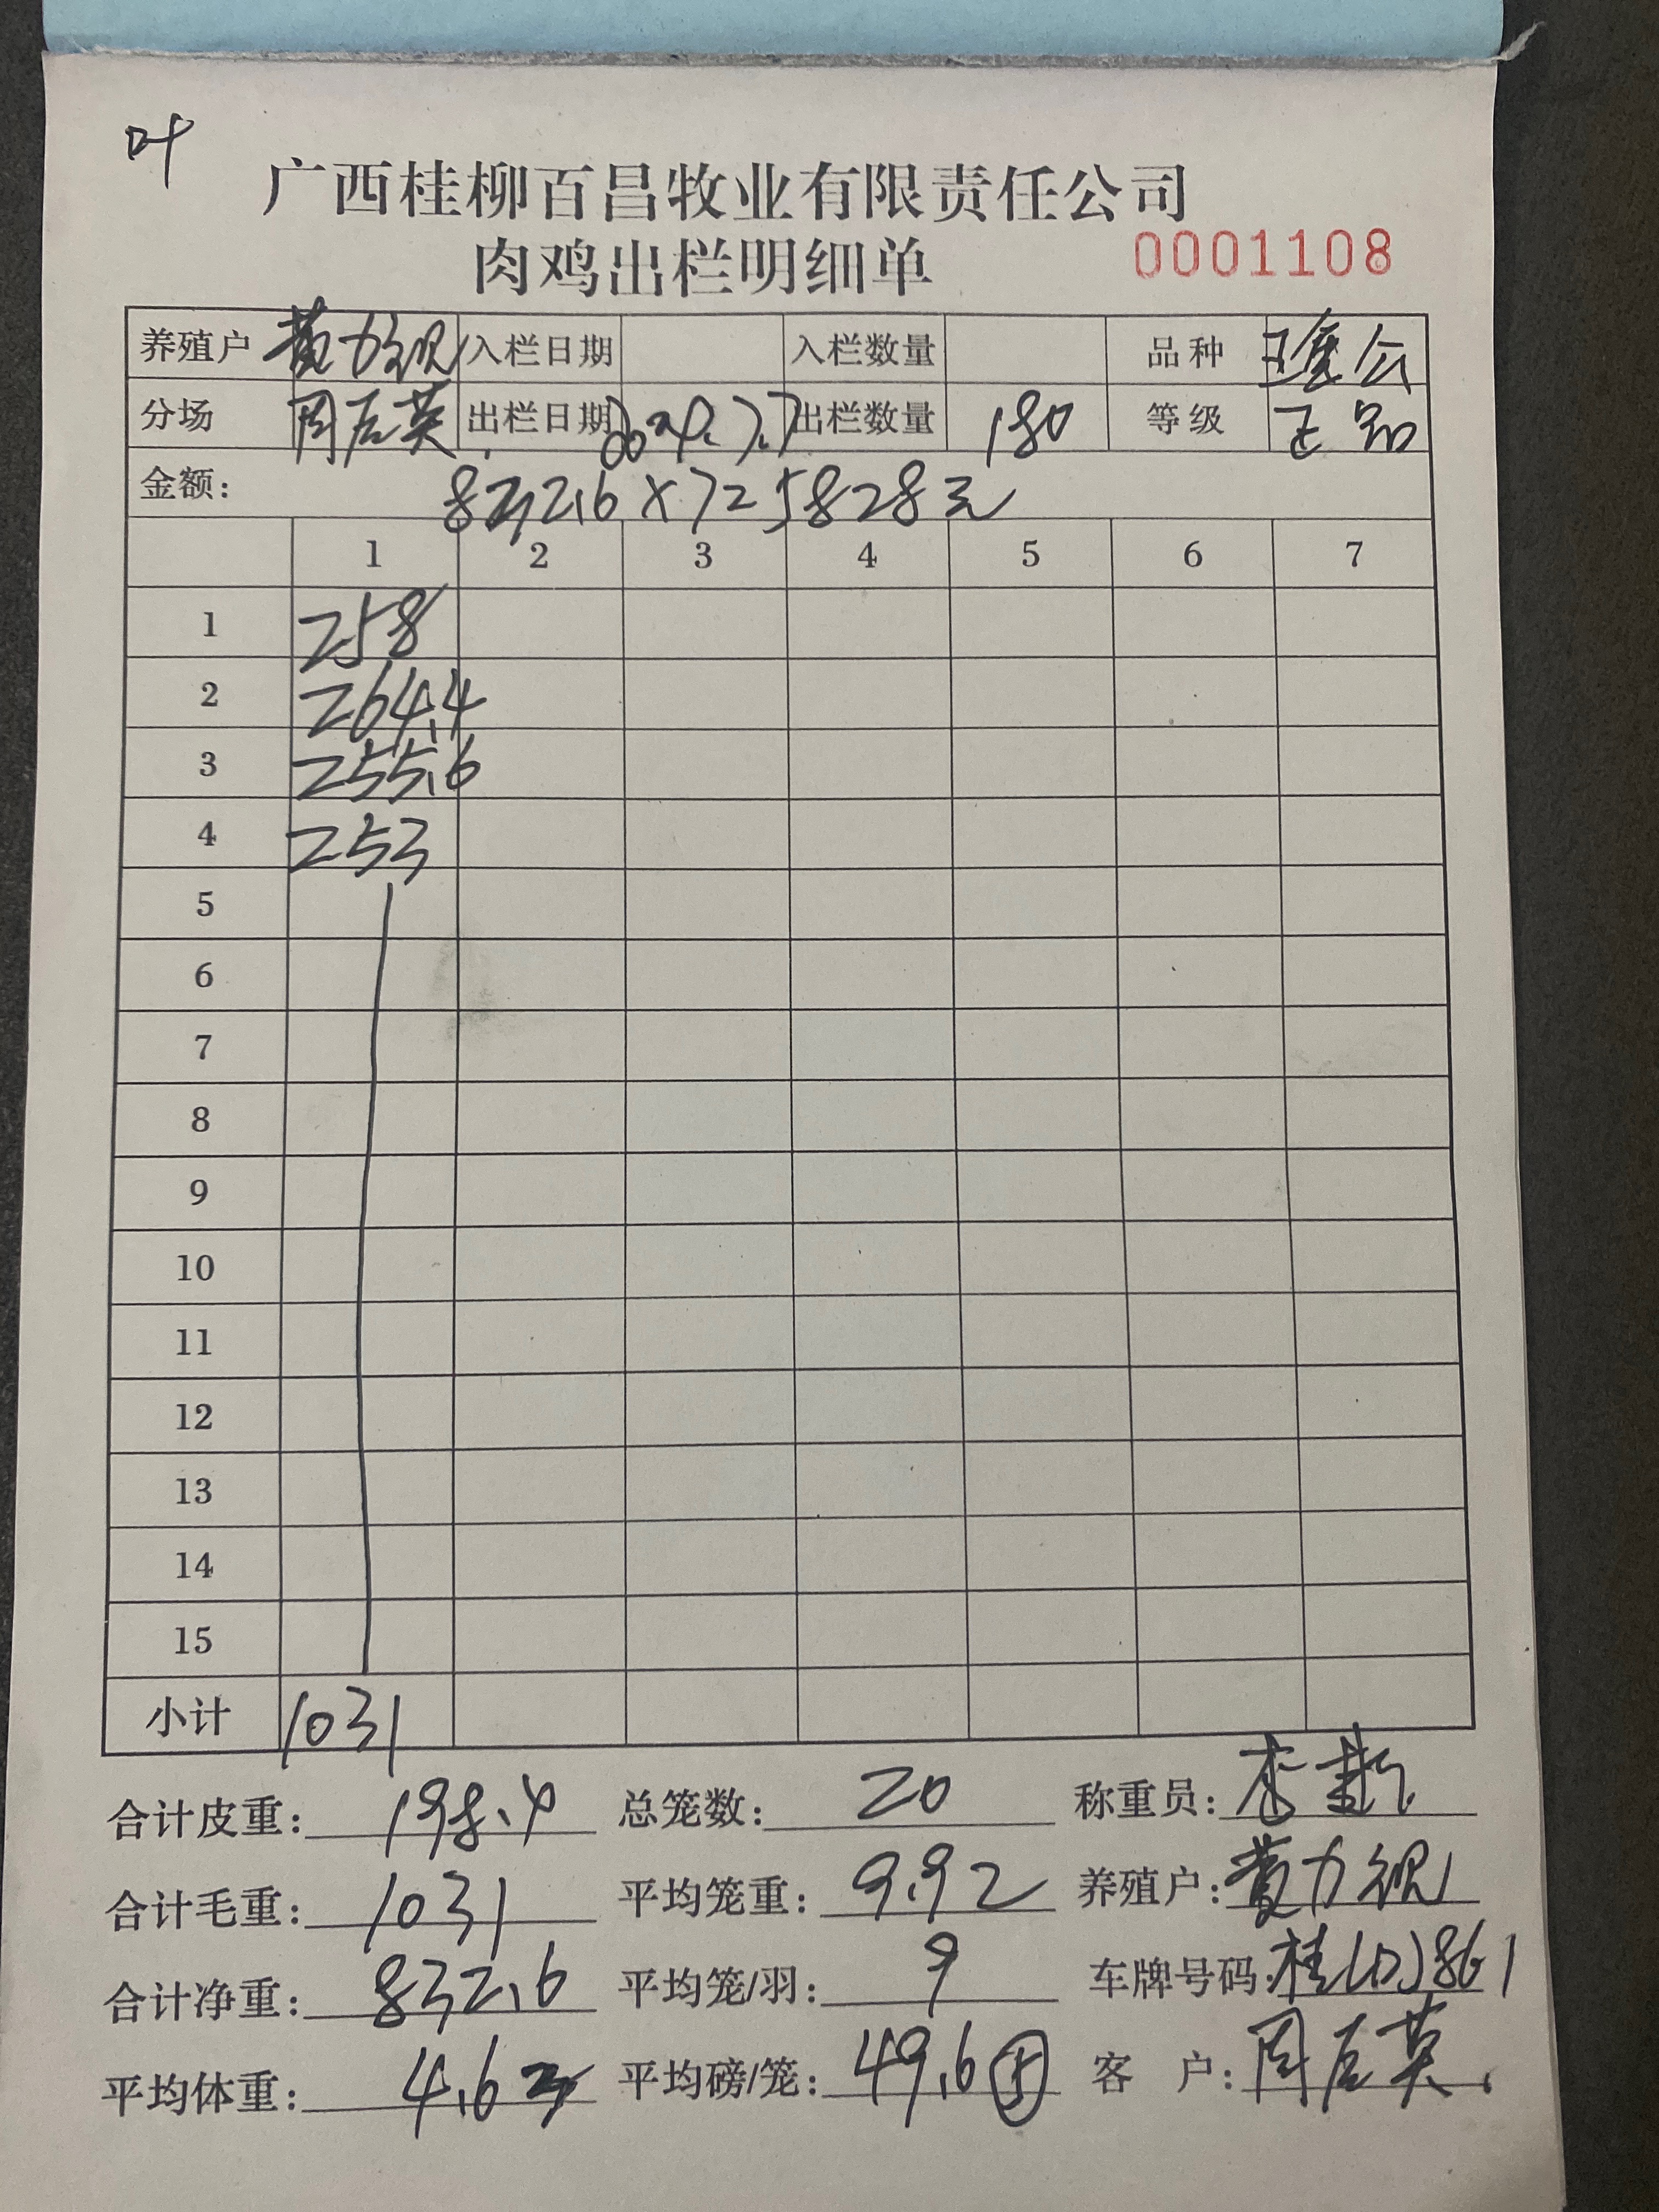 叶
广西桂柳百昌牧业有限责任公司
肉鸡出栏明细单 0001108
养殖户 黄力 入栏日期 入栏数量 品种 公
分场 周石英 出栏日期 2024.7.7 出栏数量 180 等级 正品
金额: 832.6×7=5828元
1 2 3 4 5 6 7
1 258
2 264.4
3 255.6
4 253
5
6
7
8
9
10
11
12
13
14
15
小计 1031
合计皮重: 198.4 总笼数: 20 称重员: 李
合计毛重: 1031 平均笼重: 9.92 养殖户: 黄力
合计净重: 832.6 平均笼/羽: 9 车牌号码: 桂 861
平均体重: 4.63 平均磅/笼: 49.6 客户: 周石英.